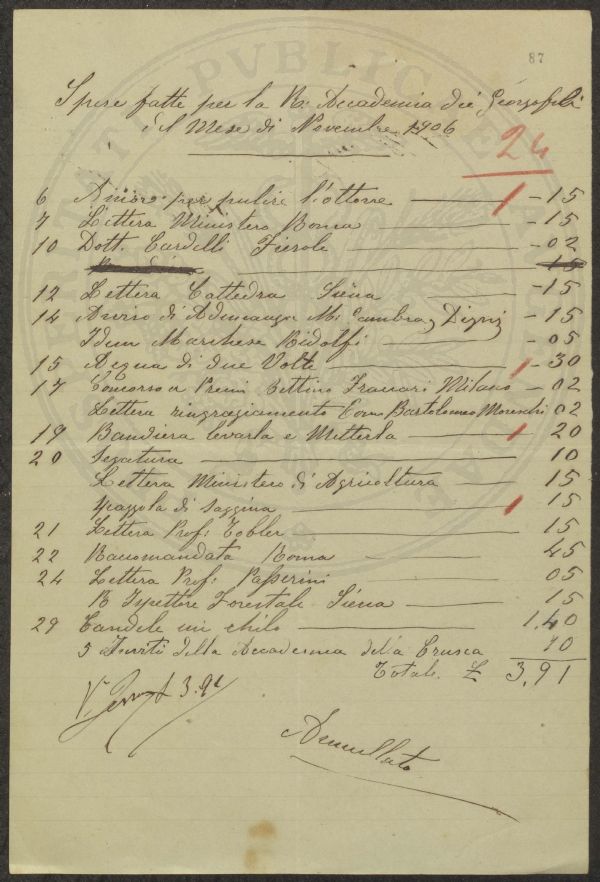 87
Spese fatte per la R. Accademia dei Georgofili
il Mese di Novembre 1906
24
6 per pulire l'ottone — 15
7 Lettera Ministero Roma — 15
10 Dott. Cardelli Fiesole — 02
15
12 Lettera Cattedra Siena — 15
14 Avviso di Adunanza Mi Cambray Digny — 15
Idem Marchese Ridolfi — 05
15 Acqua di due Volte — 30
17 Concorso a Premi Milano — 02
Lettera ringraziamento Bartolomeo Moreschi 02
19 Bandiera levarla e Metterla — 20
20 Segatura — 10
Lettera Ministero di Agricoltura — 15
Spazzola di Saggina — 15
21 Lettera Prof: Tobler — 15
22 Raccomandata Roma — 45
24 Lettera Prof: Passerini 05
R Ispettore Forestale Siena — 15
29 Candele un chilo — 1.40
5 Inviti della Accademia della Crusca 10
Totale. £ 3,91
3.91
Annullato